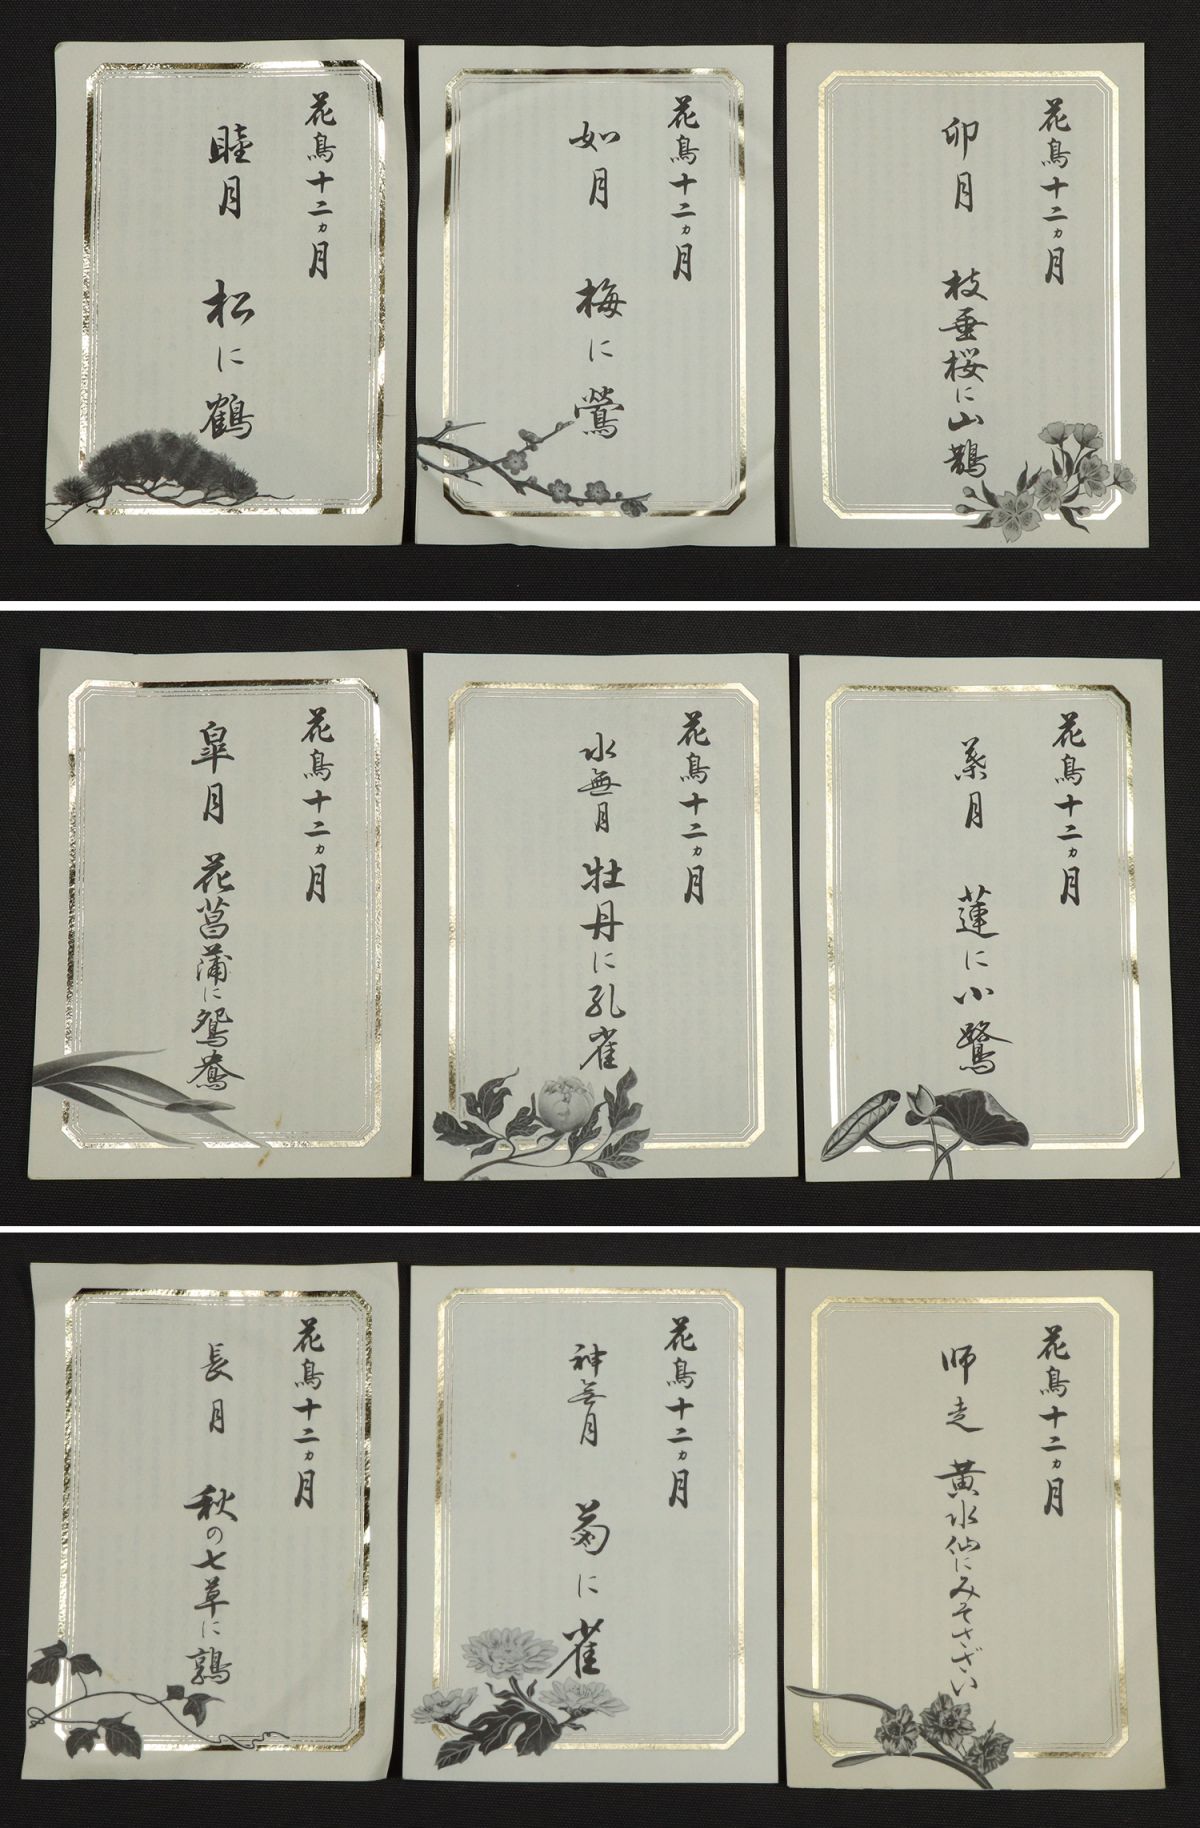 花鳥十二ヵ月
睦月 松に鶴
花鳥十二ヵ月
如月 梅に鶯
花鳥十二ヵ月
卯月 枝垂桜に山鵲
花鳥十二ヵ月
皐月 花菖蒲に鴛鴦
花鳥十二ヵ月
水無月 牡丹に孔雀
花鳥十二ヵ月
葉月 蓮に小鷺
花鳥十二ヵ月
長月 秋の七草に鶉
花鳥十二ヵ月
神無月 菊に雀
花鳥十二ヵ月
師走 黄水仙にみそさざい